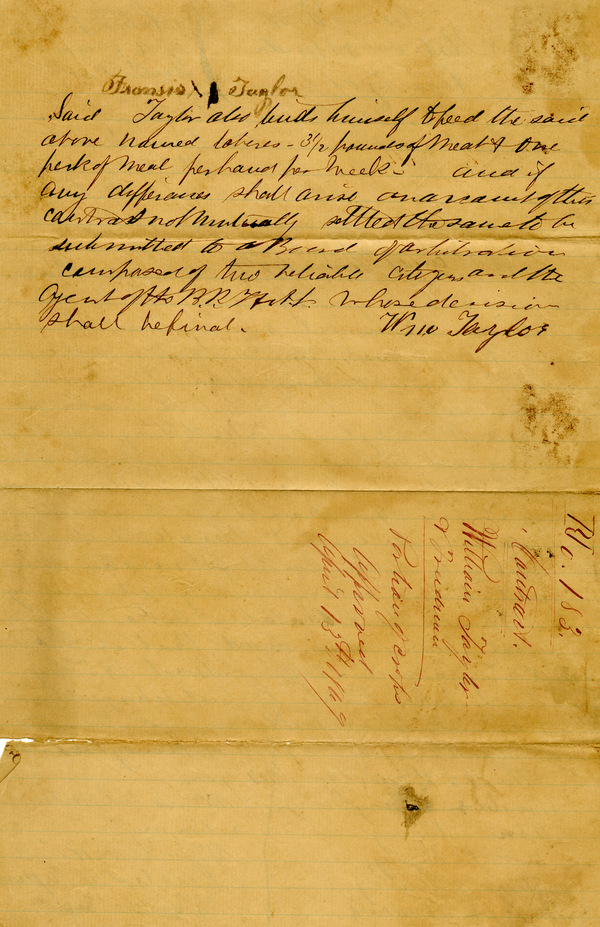 Fransis X Taylor
Said Taylor also binds himself to feed the said
above named laberes - 3 1/2 pounds of Meat & One
perk of Meal per hand per Week - and if
any differances shall arise on account of this
contract not mutually settled the same to be
submitted to a Board of arbitration
composed of two reliable citizens and the
Agent of the B. R. F. & A. L. whose decision
shall be final. Wm Taylor
No. 182.
Contract.
William Taylor
& Freedmen
For having crops
Approved
April 13th 1869